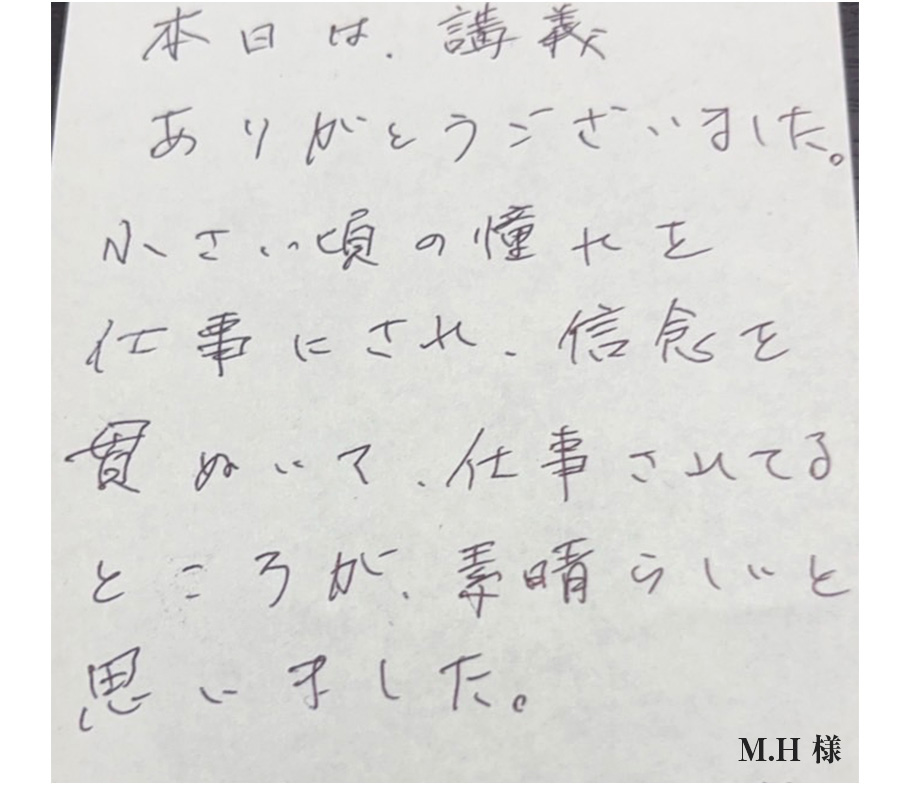 本日は、講義
ありがとうございました。
小さい頃の憧れを
仕事にされ、信念を
貫ぬいて、仕事されてる
ところが、素晴らしいと
思いました。
M.H 様